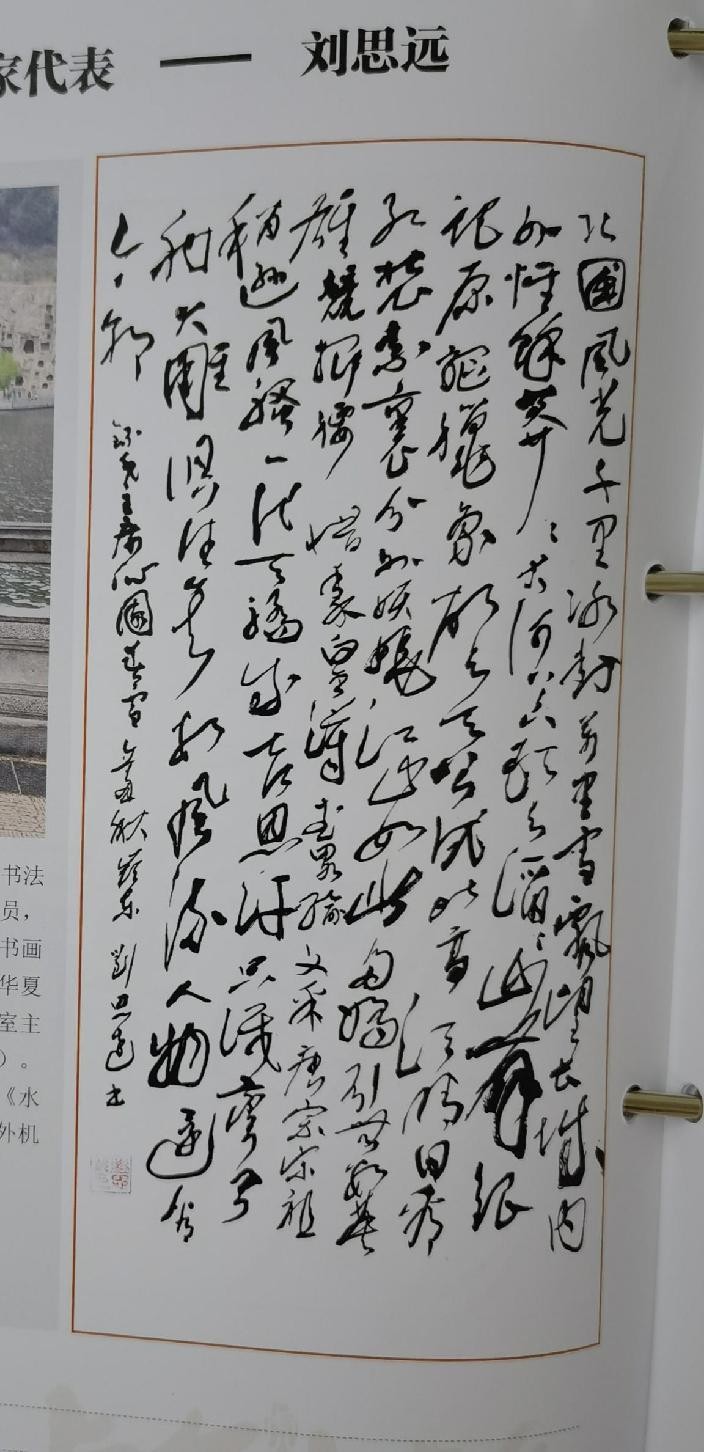 家代表 —— 刘思远
北國風光千里冰封萬里雪飄望长城内
外惟餘莽〻大河上下顿失滔〻山舞银
蛇原驰臘象欲与天公试比高须晴日看
红装素裹分外妖娆江山如此多娇引無数英
雄競折腰惜秦皇漢武略输文采唐宗宋祖
稍逊風騷一代天骄成吉思汗只识弯弓
射大雕俱往矣数風流人物還看
今朝
录毛主席沁園春雪 秋 劉思遠书
书法
员，
书画
华夏
室主
）。
《水
外机